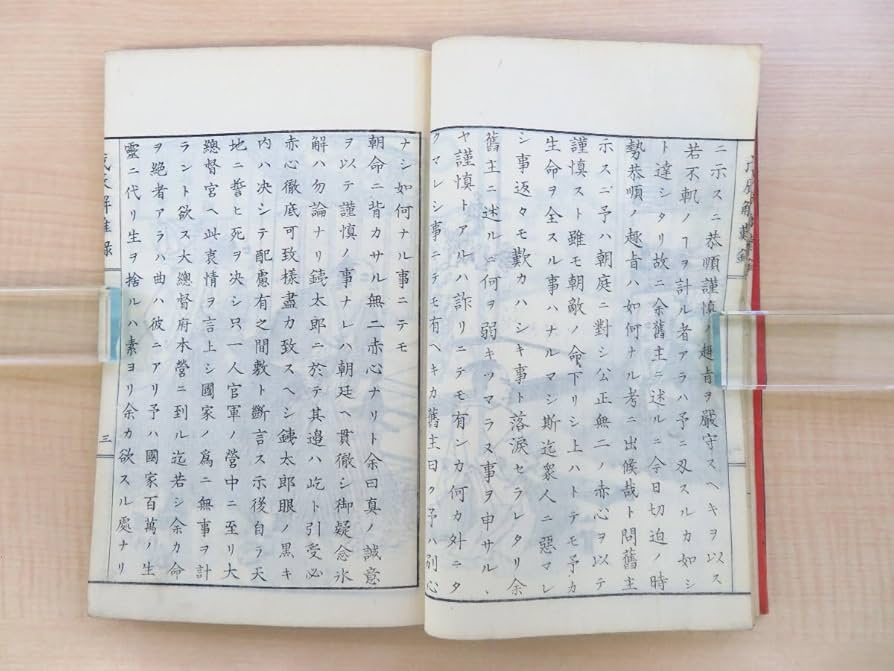 ニ示スニ恭順謹愼ノ趣旨ヲ嚴守スヘキヲ以ス
若不軌ノヿヲ計ル者アラハ予ニ刄スルカ如シ
ト達シタリ故ニ余舊主ニ述ルニ今日切迫ノ時
勢恭順ノ趣旨ハ如何ナル考ニ出候哉ト問舊主
示スニ予ハ朝庭ニ對シ公正無二ノ赤心ヲ以テ
謹愼スト雖モ朝敵ノ命下リシ上ハトテモ予カ
生命ヲ全スル事ハナルマシ斯迄衆人ニ惡マレ
シ事返タモ歎カハシキ事ト落淚セラレタリ余
舊主ニ述ルニ何ヲ弱キツマラヌ事ヲ申サルヽ
ヤ謹愼トアルハ詐リニテモ有ンカ何カ外ニタ
クマレシ事ニテモ有ヘキカ舊主曰ク予ハ別心
ナシ如何ナル事ニテモ
朝命ニ背カサル無二赤心ナリト余曰眞ノ誠意
ヲ以テ謹愼ノ事ナレハ朝廷ヘ貫徹シ御疑念氷
解ハ勿論ナリ鐵太郎ニ於テ其邊ハ屹ト引受必
赤心徹底可致樣盡力致スヘシ鐵太郎眼ノ黒キ
内ハ决シテ配慮有之間敷ト斷言ス示後自ラ天
地ニ誓ヒ死ヲ决シ只一人官軍ノ營中ニ至リ大
總督宮ヘ此衷情ヲ言上シ國家ノ爲ニ無事ヲ計
ラント欲ス大總督府本營ニ到ル迄若シ余カ命
ヲ絶者アラハ曲ハ彼ニアリ予ハ國家百萬ノ生
靈ニ代リ生ヲ捨ルハ素ヨリ余カ欲スル處ナリ
三